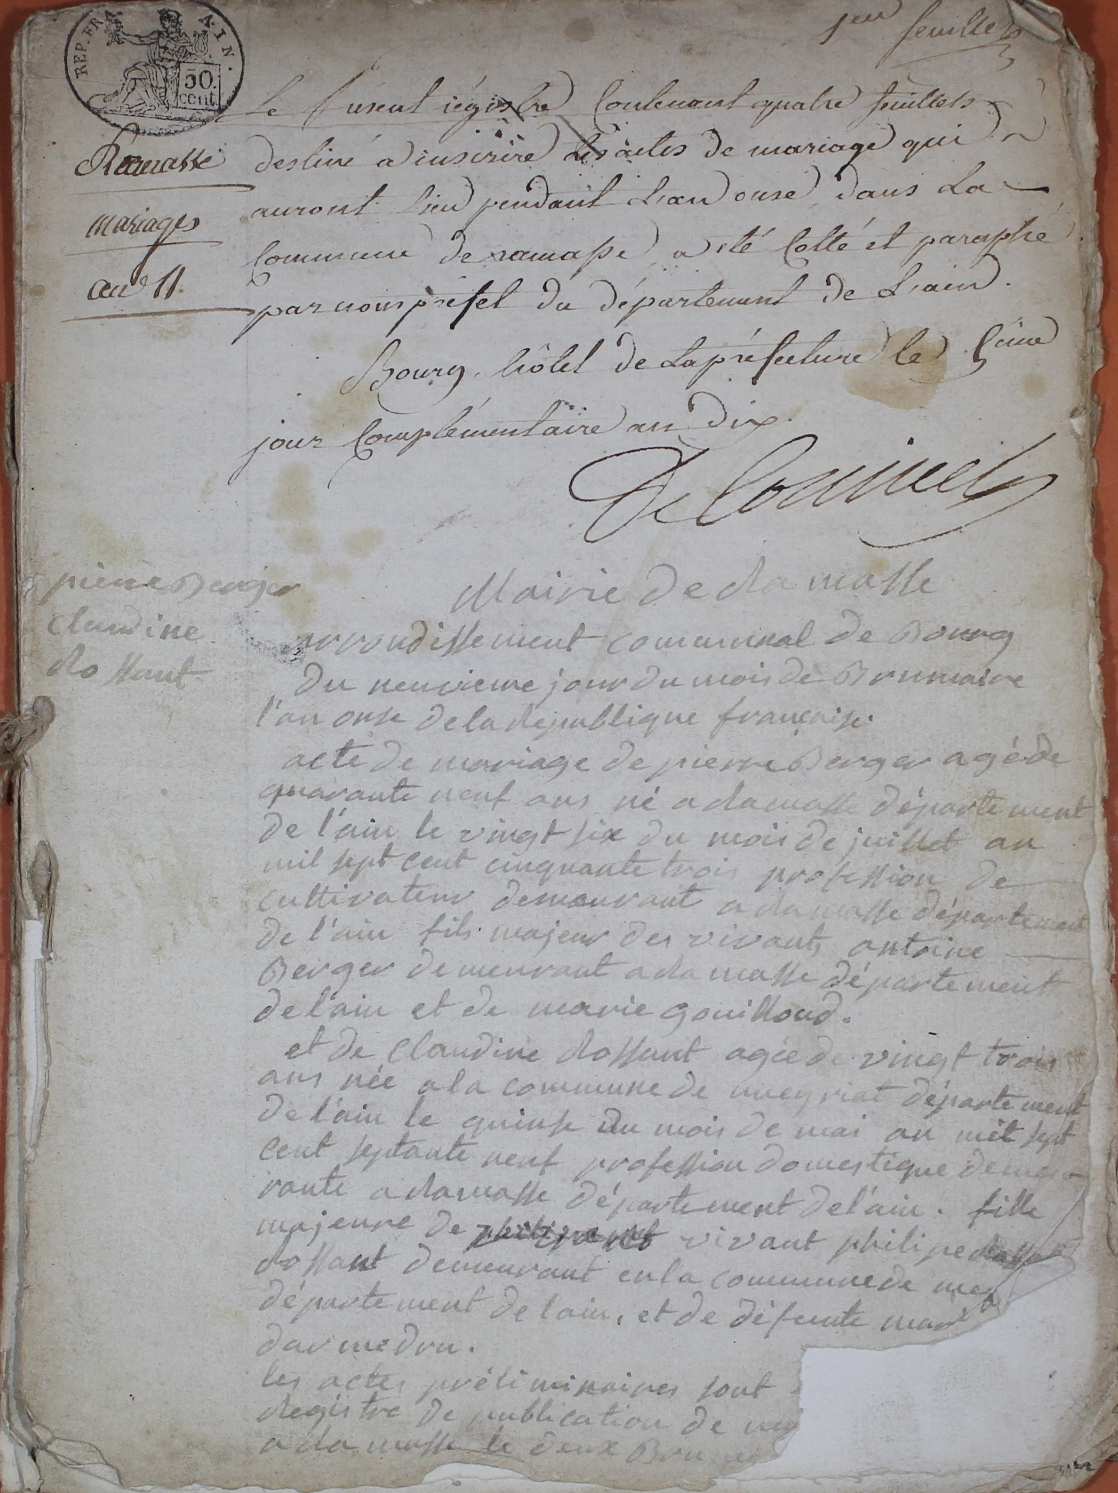 1er feuillet
REP. FRA. AIN.
50
cent.
Le présent régistre Contenant quatre feuillets
destiné a inscrire Les actes de mariage qui
auront lieu pendant L'an onse dans La
Commune de ramasse a été Cotté et paraphé
par nous préfet du département de L'ain.
Bourg, hôtel de La préfecture le 5ème
jour Complémentaire an Dix.
Ramasse
mariages
an 11.
pierre Berger
Claudine
Rossant
Mairie de Ramasse
arrondissement communal de Bourg
Du neuvieme jour du mois de Brumaire
l'an onse de la République française.
acte de mariage de pierre Berger agé de
quarante neuf ans né a Ramasse département
de l'ain le vingt six du mois de juillet an
mil sept cent cinquante trois profession de
cultivateur demeurant a Ramasse département
de l'ain fils majeur des vivants antoine
Berger demeurant a Ramasse département
de l'ain et de marie Gouilloud.
et de Claudine Rossant agée de vingt trois
ans née a la commune de meyriat département
de l'ain le quinse du mois de mai an mil sept
cent septante neuf profession domestique demeu
rante a Ramasse département de l'ain. fille
majeure de vivant philipe
Rossant demeurant en la commune de mey
département de l'ain, et de défunte mar
darmedru.
les actes préliminaires sont
Registre de publication de
a Ramasse le deux Brum